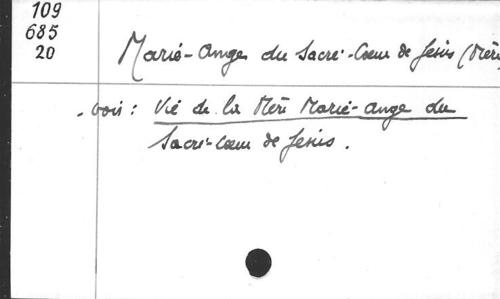 109
685
20
Marie-Ange du Sacré-Cœur de Jésus (Mère
voir : Vie de la Mère Marie-Ange du
Sacré-Cœur de Jésus.